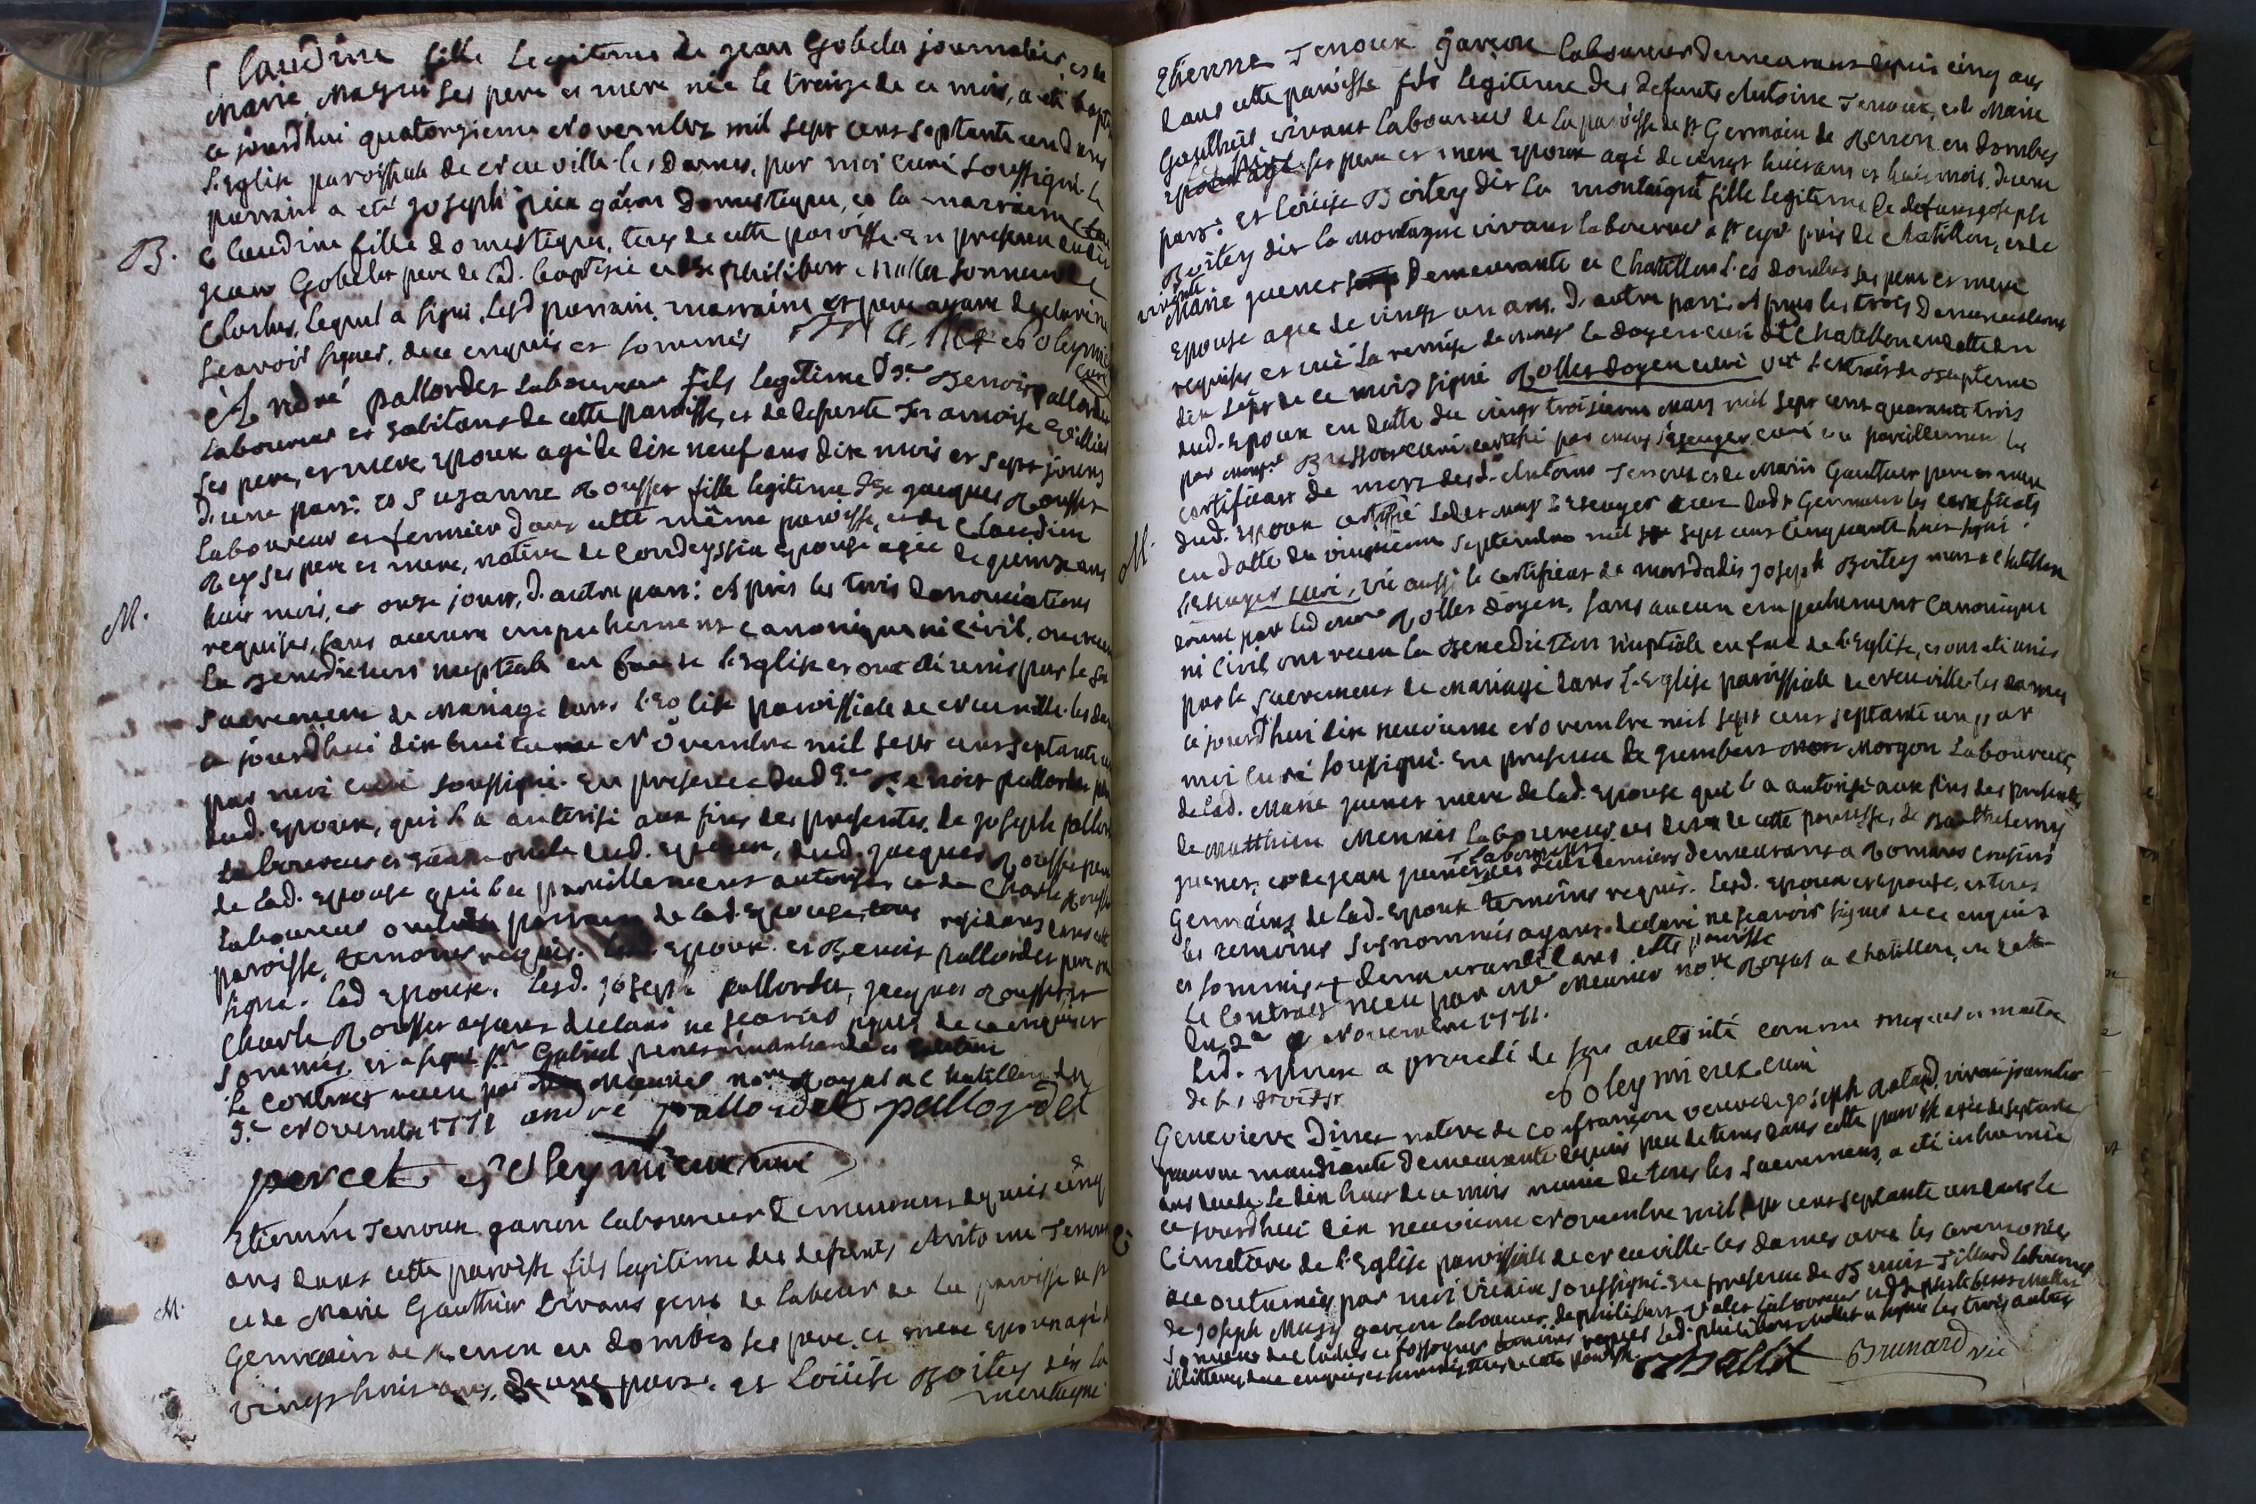 Claudine fille legitime de jean Gobelet journalier, et de
Marie Magnin ses pere et mere née le treize de ce mois, a eté baptisée
ce jourd'hui quatorzieme Novembre mil sept cent septante un dans
l'Eglise paroissiale de Neuville-les Dames, par moi curé soussigné. Le
parrain a eté joseph garçon domestique, et la marraine
B.
Claudine fille domestique, tous de cette paroisse. En presence dudit
jean Gobelet pere de lad. baptisée et de philibert Mollet sonneur de
Cloches, lequel a signé, lesd parrain, marraine et pere ayant declaré ne
sçavoir signer, de ce enquis et sommés Mollet Poleymieux
curé
André pallordet laboureur fils legitime d'sr. Benoit pallordet
laboureur et habitant de cette paroisse, et de defunte Françoise
ses pere, et mere, epoux agé de dix neuf ans dix mois et sept jours
d'une part: et Suzanne Rousset fille legitime de jacques Rousset
laboureur et fermier dans cette même paroisse, et de Claudine
Rey ses pere et mere, native de Condeyssia epouse agée de quinze ans
M.
huit mois, et onze jours, d'autre part: Après les trois denonciations
requises, sans aucun empechement canonique ni civil, ont reçu
la Benediction nuptiale en face de l'Eglise et ont été unis par le
sacrement de Mariage dans l'Eglise paroissiale de Neuville-les dames
ce jourd'hui dix huitieme Novembre mil sept cent septante un
par moi curé soussigné. En presence dud sr. Benoit pallordet pere
dud. epoux, qui l'a autorisé aux fins des presentes, de joseph pallordet
laboureur et oncle dud. epoux, dud. jacques Rousset pere
de lad. epouse qui l'a pareillement autorisée et de Charle Rousset
laboureur oncle parrain de lad. epouse, tous residants dans cette
paroisse, temoins requis. Led. epoux et Benoit pallordet pere ont
signé. Lad epouse, lesd. joseph pallordet, jacques Rousset et
Charle Rousset ayant declaré ne sçavoir signer de ce enquis et
sommés, et a signé sr. Gabriel percet
Le contract reçu par Meunier nore. Royal a Chatillon du
9e. Novembre 1771 andré pallordet pallordet
percet Poleymieux curé
Etienne Terroux garçon laboureur Demeurant depuis cinq
ans dans cette paroisse fils legitime des defunts Antoine Terroux
et de Marie Gauthier vivans gens de labeur de la paroisse de St
M.
Germain de Renon en dombes ses pere et mere epoux agé de
vingt huit ans, d'une part. et Loüise Boitey dit la
montagne
Etienne Terroux garçon laboureur Demeurant depuis cinq ans
dans cette paroisse fils legitime des defunts Antoine Terroux, et de Marie
Gauthier vivant laboureur de la paroisse de St Germain de Renon en dombes
ses pere et mere epoux agé de vingt huit ans et huit mois, d'une
part: et Loüise Boitey dit la montaigne fille legitime de defunt joseph
Boitey dit la Montagne vivant laboureur a St cyr près de Chatillon, et de
vivante
Marie guenet Demeurante a Chatillon les dombes ses pere et mere
Epouse agée de vingt un ans, d'autre part. Après les trois denonciations
requises et vuë la remise de monsr le doyen curé de Chatillon en datte du
dix sept de ce mois signé Rollet doyen curé vu l'extrait de Bapteme
dud. epoux en datte du vingt troisieme Mars mil sept cent quarante trois
par monsr. curé certifié par monsr Lescuyer curé vu pareillement les
certificats de mort desd. Antoine Terroux et de Marie Gauthier pere et mere
M.
dud. epoux certifié Lescuyer curé dud St Germain les certificats
en datte du vingtieme septembre mil sept cent cinquante huit signé
Lescuyer curé, vu aussi le certificat de mort dudit joseph Boitey mort a Chatillon
donné par led monr Rollet doyen, sans aucun empechement canonique
ni civil, ont reçu la Benediction nuptiale en face de l'Eglise, et ont eté unis
par le sacrement de Mariage dans l'Eglise paroissiale de Neuville-les dames
ce jourd'hui dix neuvieme Novembre mil sept cent septante un par
moi curé soussigné. En presence de gumbert Morgon laboureur,
de lad. Marie guenet mere de lad. epouse qui l'a autorisé aux fins des presentes
de Matthieu Meunier laboureur de cette paroisse, de Barthelemy
laboureurs
guenet, et de jean guenet ces deux derniers demeurants a Romans cousins
Germains de lad. epouse temoins requis. Lesd. epoux et epouse, et tous
les temoins susnommés ayant declaré ne sçavoir signer de ce enquis
et sommés + demeurante dans cette paroisse
Le contract reçu par Me Meunier nore Royal a Chatillon, en datte
du 2e Novembre 1771.
Led. epoux a procedé de son autorité comme majeur et maitre
de ses droits Poleymieux curé
Genevieve Diner native de Confrançon veuve de joseph Rolard, vivant journalier
pauvre mandiante demeurante depuis peu de tems dans cette paroisse agée de septante
ans decedée le dix huit de ce mois munie de tous les sacremens, a eté inhumée
ce jourd'hui dix neuvieme Novembre mil sept cent septante un dans le
Cimetiere de l'Eglise paroissiale de Neuville-les dames avec les ceremonies
accoutumées par moi vicaire soussigné. En presence de Benoit Tillard laboureur
de joseph Mury garçon laboureur, de philibert laboureur et de philibert Mollet
sonneur de cloches et fossoyeur temoins requis led. philibert Mollet a signé les trois autres
illitterés de ce enquis et sommés tous de cette paroisse Mollet Brunard vic